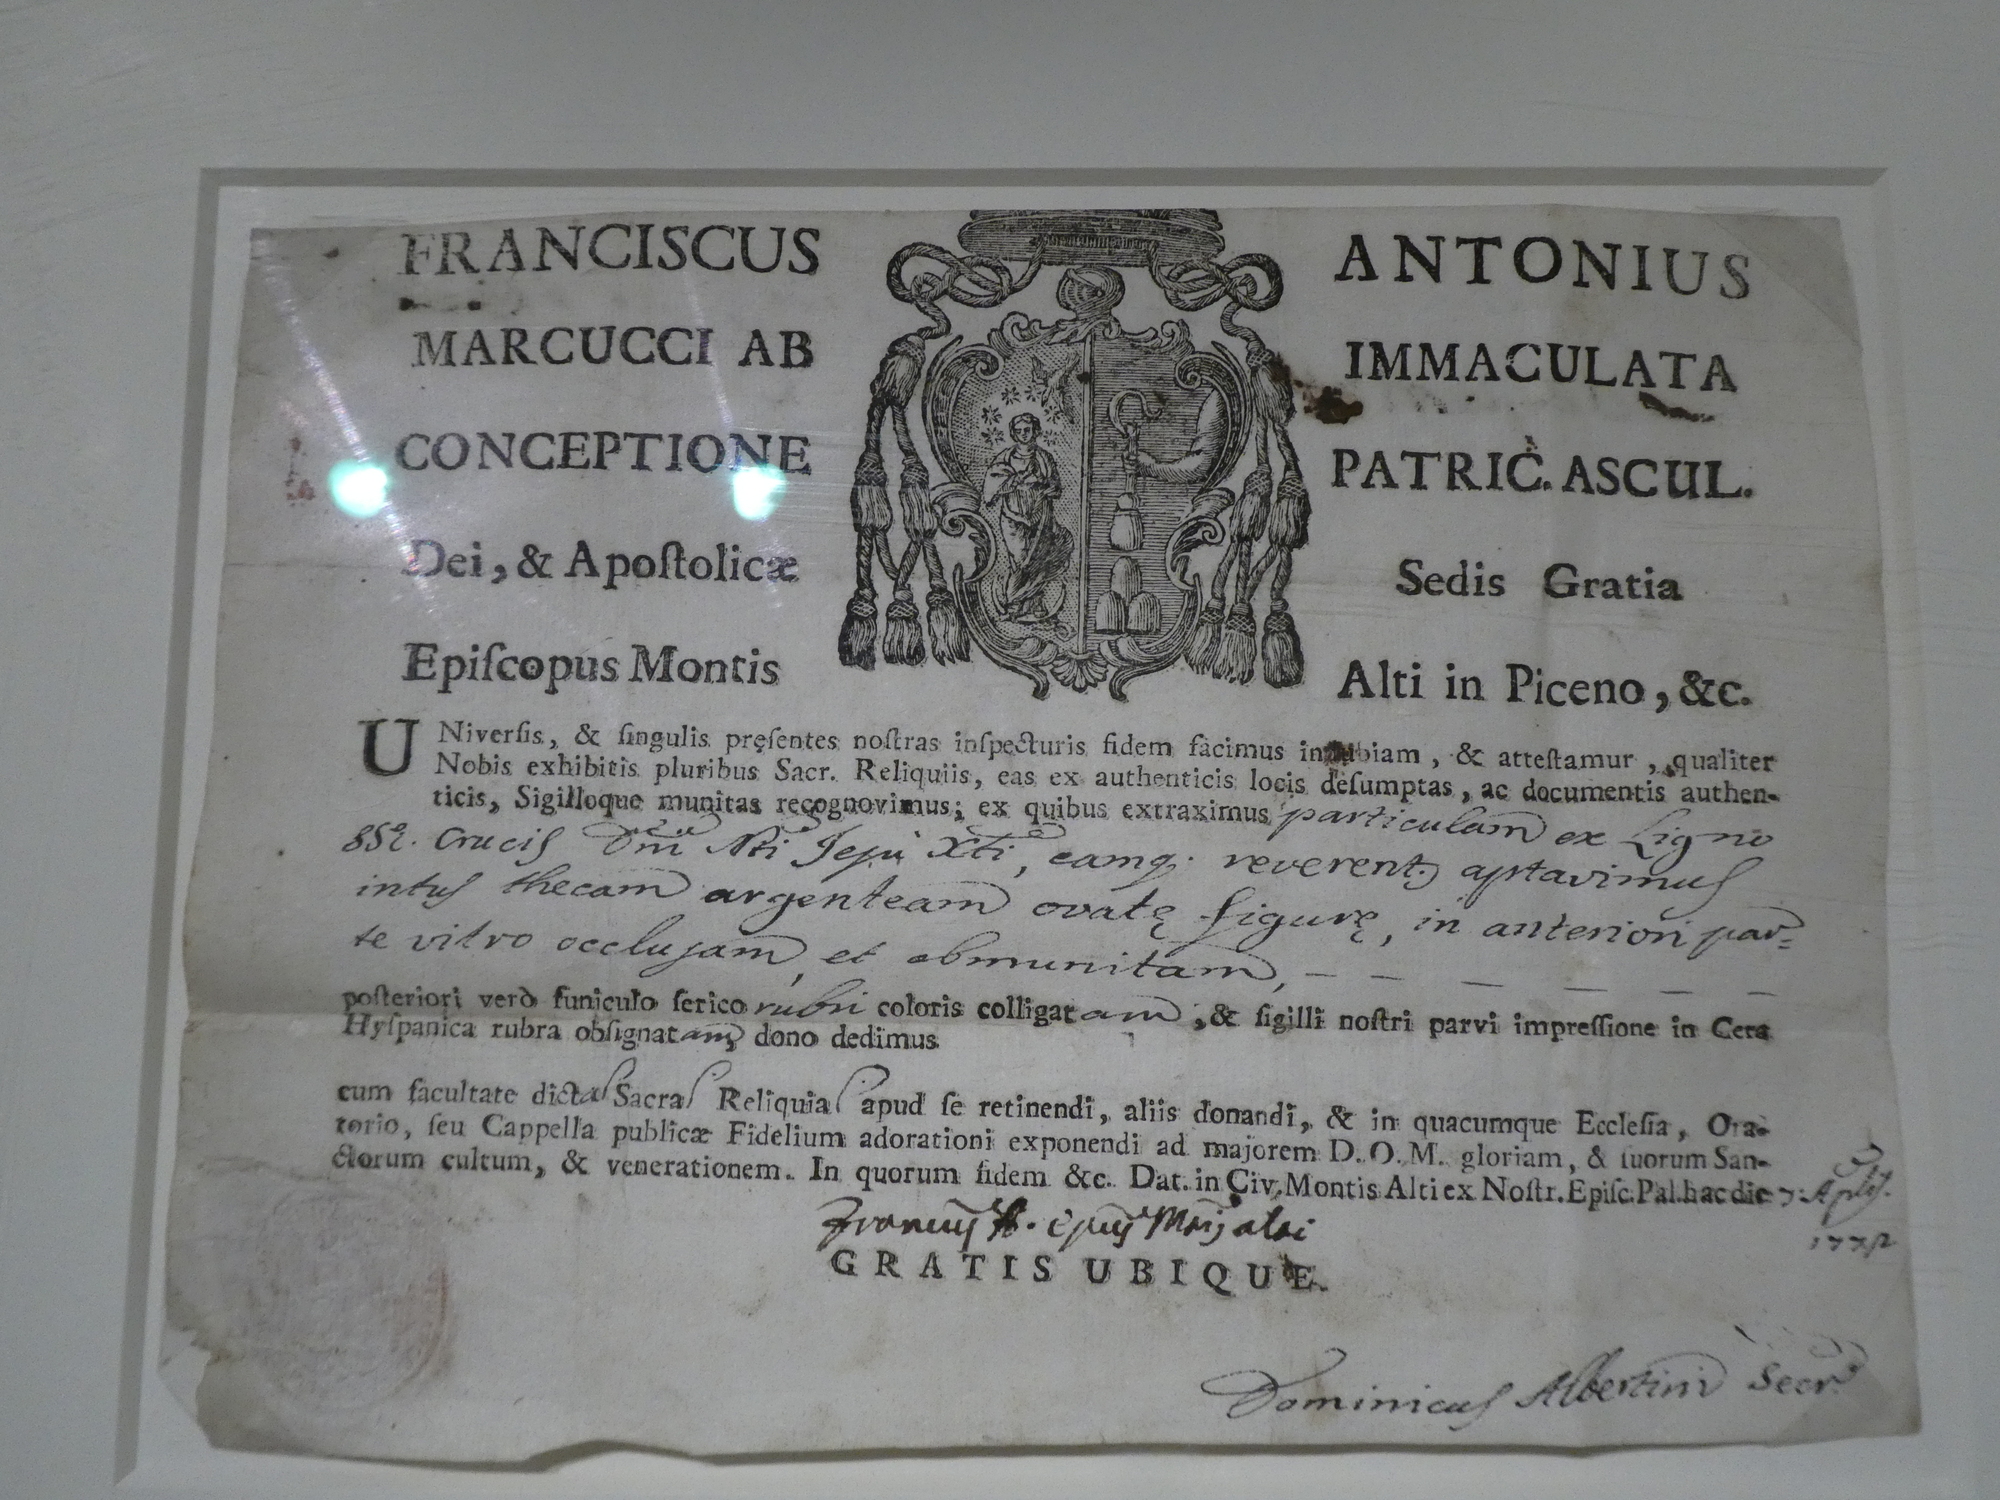 FRANCISCUS ANTONIUS
MARCUCCI AB IMMACULATA
CONCEPTIONE PATRIC. ASCUL.
Dei, & Apoſtolicæ Sedis Gratia
Epiſcopus Montis Alti in Piceno, &c.
UNiverſis, & ſingulis pręſentes noſtras inſpecturis fidem facimus indubiam, & atteſtamur, qualiter
Nobis exhibitis pluribus Sacr. Reliquiis, eas ex authenticis locis deſumptas, ac documentis authen-
ticis, Sigilloque munitas recognovimus; ex quibus extraximus particulam ex Ligno
SSe. Crucis Dni Nri Jesu Xti, eamq. reverent. aptavimus
intus thecam argenteam ovatę figurę, in anteriori par=
te vitro occlusam, et obmunitam, — — — — — —
poſteriori verò funiculo ſerico rubri coloris colligatam, & ſigilli noſtri parvi impreſſione in Cera
Hyſpanica rubra obſignatam, dono dedimus
cum facultate dictas Sacras Reliquias apud ſe retinendi, aliis donandi, & in quacumque Eccleſia, Ora-
torio, ſeu Cappella publicæ Fidelium adorationi exponendi ad majorem D. O. M. gloriam, & ſuorum San-
ctorum cultum, & venerationem. In quorum fidem &c. Dat. in Civ. Montis Alti ex Noſtr. Epiſc. Pal. hac die 7.
Francus A. Epus Montis alti
GRATIS UBIQUE.
Dominicus Albertini Secr.